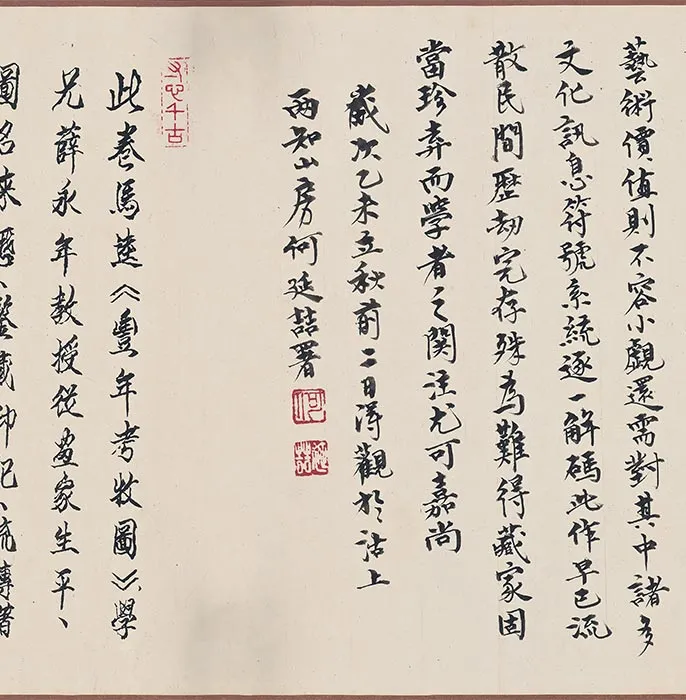 藝術價值則不容小覷還需對其中諸多
文化訊息符號系統逐一解碼此作早已流
散民間歷劫完存殊為難得藏家固
當珍弆而學者之關注尤可嘉尚
歲次乙未立秋前二日得觀於沽上
兩知山房何延喆署
何
延喆
文心千古
此卷馬逵《豐年考牧圖》學
兄薛永年教授從畫家生平、
圖名來歷、鑒藏印記、流傳著